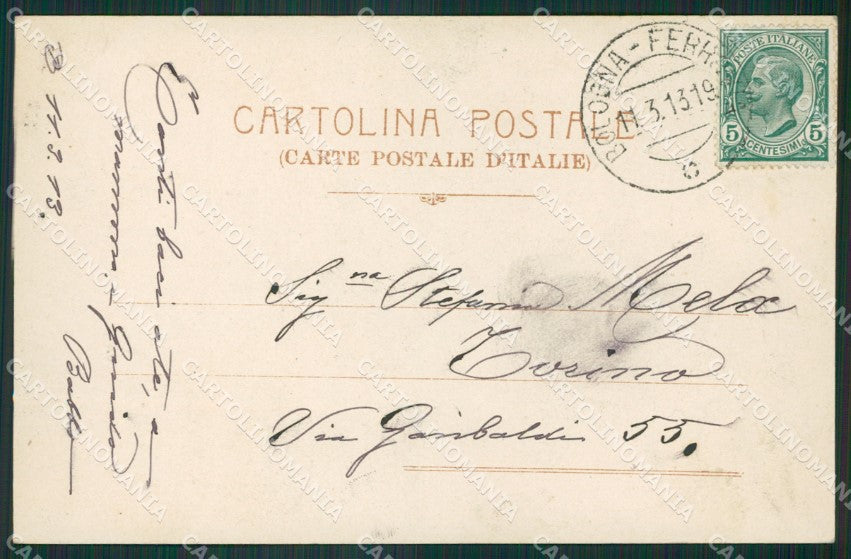 CARTOLINA POSTALE
(CARTE POSTALE D'ITALIE)
BOLOGNA - FERR
11.3.13 19
POSTE ITALIANE
5 5
CENTESIMI
Sig.na Stefania Mela
Torino
Via Garibaldi 55.
11.3.13.
Tanti baci a te, e
mamma
CARTOLINOMANIA